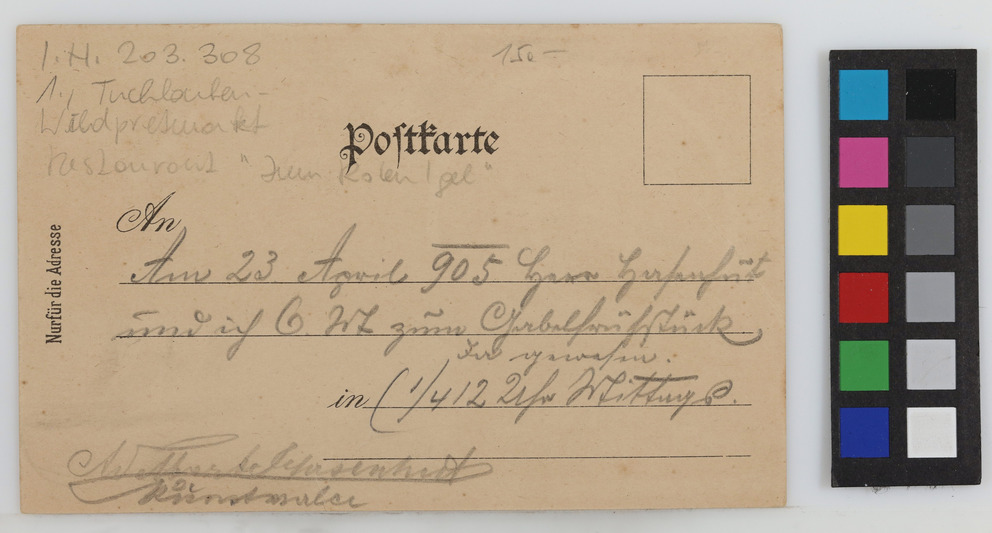 I.H. 203.308
150.-
1., Tuchlauben-
Wildpretmarkt
Restaurant "Zum Roten Igel"
Postkarte
Nur für die Adresse
An
Am 23 April 905 Herr Hasenhüt
und ich C. M. zum Gabelfrühstück,
da gewesen.
in (1/4 12 Uhr Mittags.
Kunstmaler